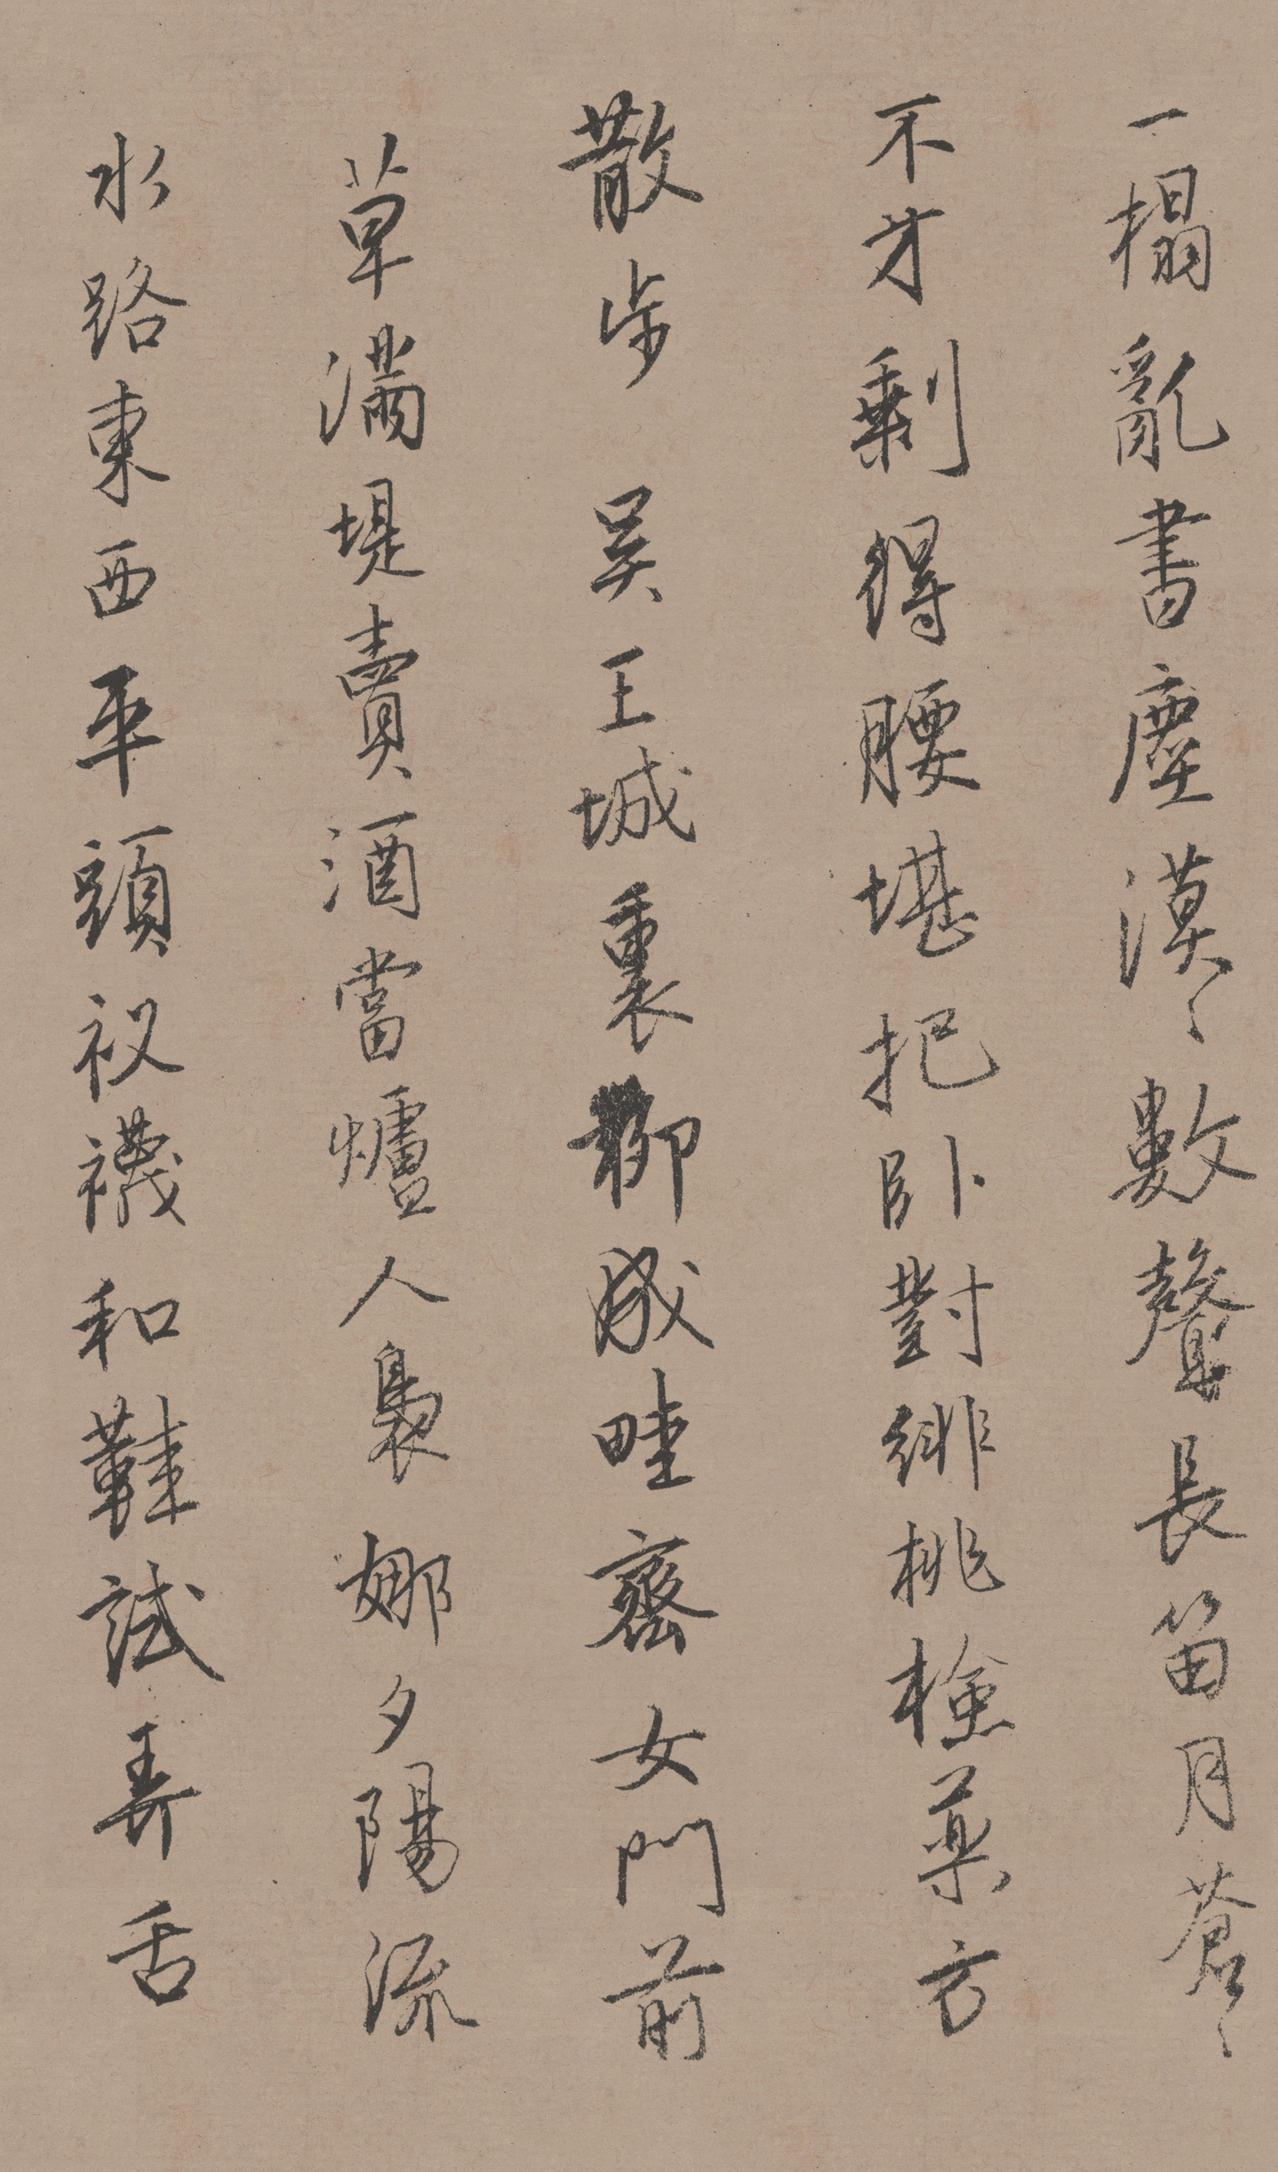 一榻亂書塵漠〻數聲長笛月蒼〻
不才剩得腰堪把臥對緋桃檢藥方
散步 吴王城裏柳成畦齊女門前
草滿堤賣酒當爐人裊娜夕陽流
水路東西平頭衩襪和鞋試弄舌